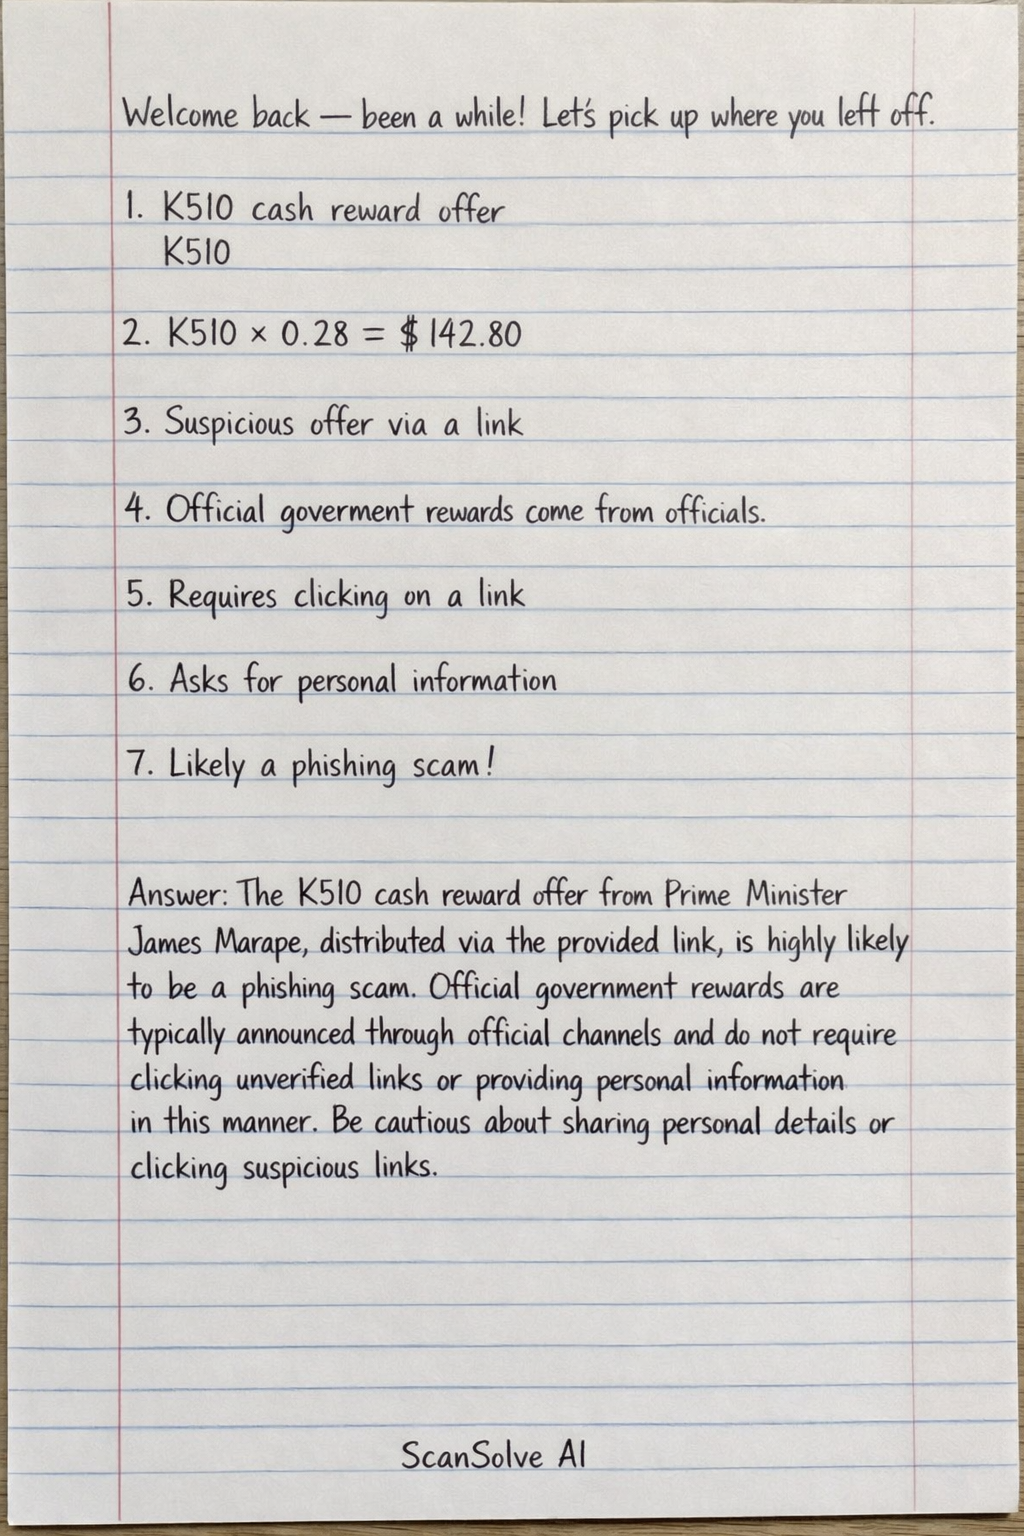 Welcome back — been a while! Let's pick up where you left off.
1. K510 cash reward offer
K510
2. K510 × 0.28 = $142.80
3. Suspicious offer via a link
4. Official goverment rewards come from officials.
5. Requires clicking on a link
6. Asks for personal information
7. Likely a phishing scam!
Answer: The K510 cash reward offer from Prime Minister
James Marape, distributed via the provided link, is highly likely
to be a phishing scam. Official government rewards are
typically announced through official channels and do not require
clicking unverified links or providing personal information
in this manner. Be cautious about sharing personal details or
clicking suspicious links.
ScanSolve AI